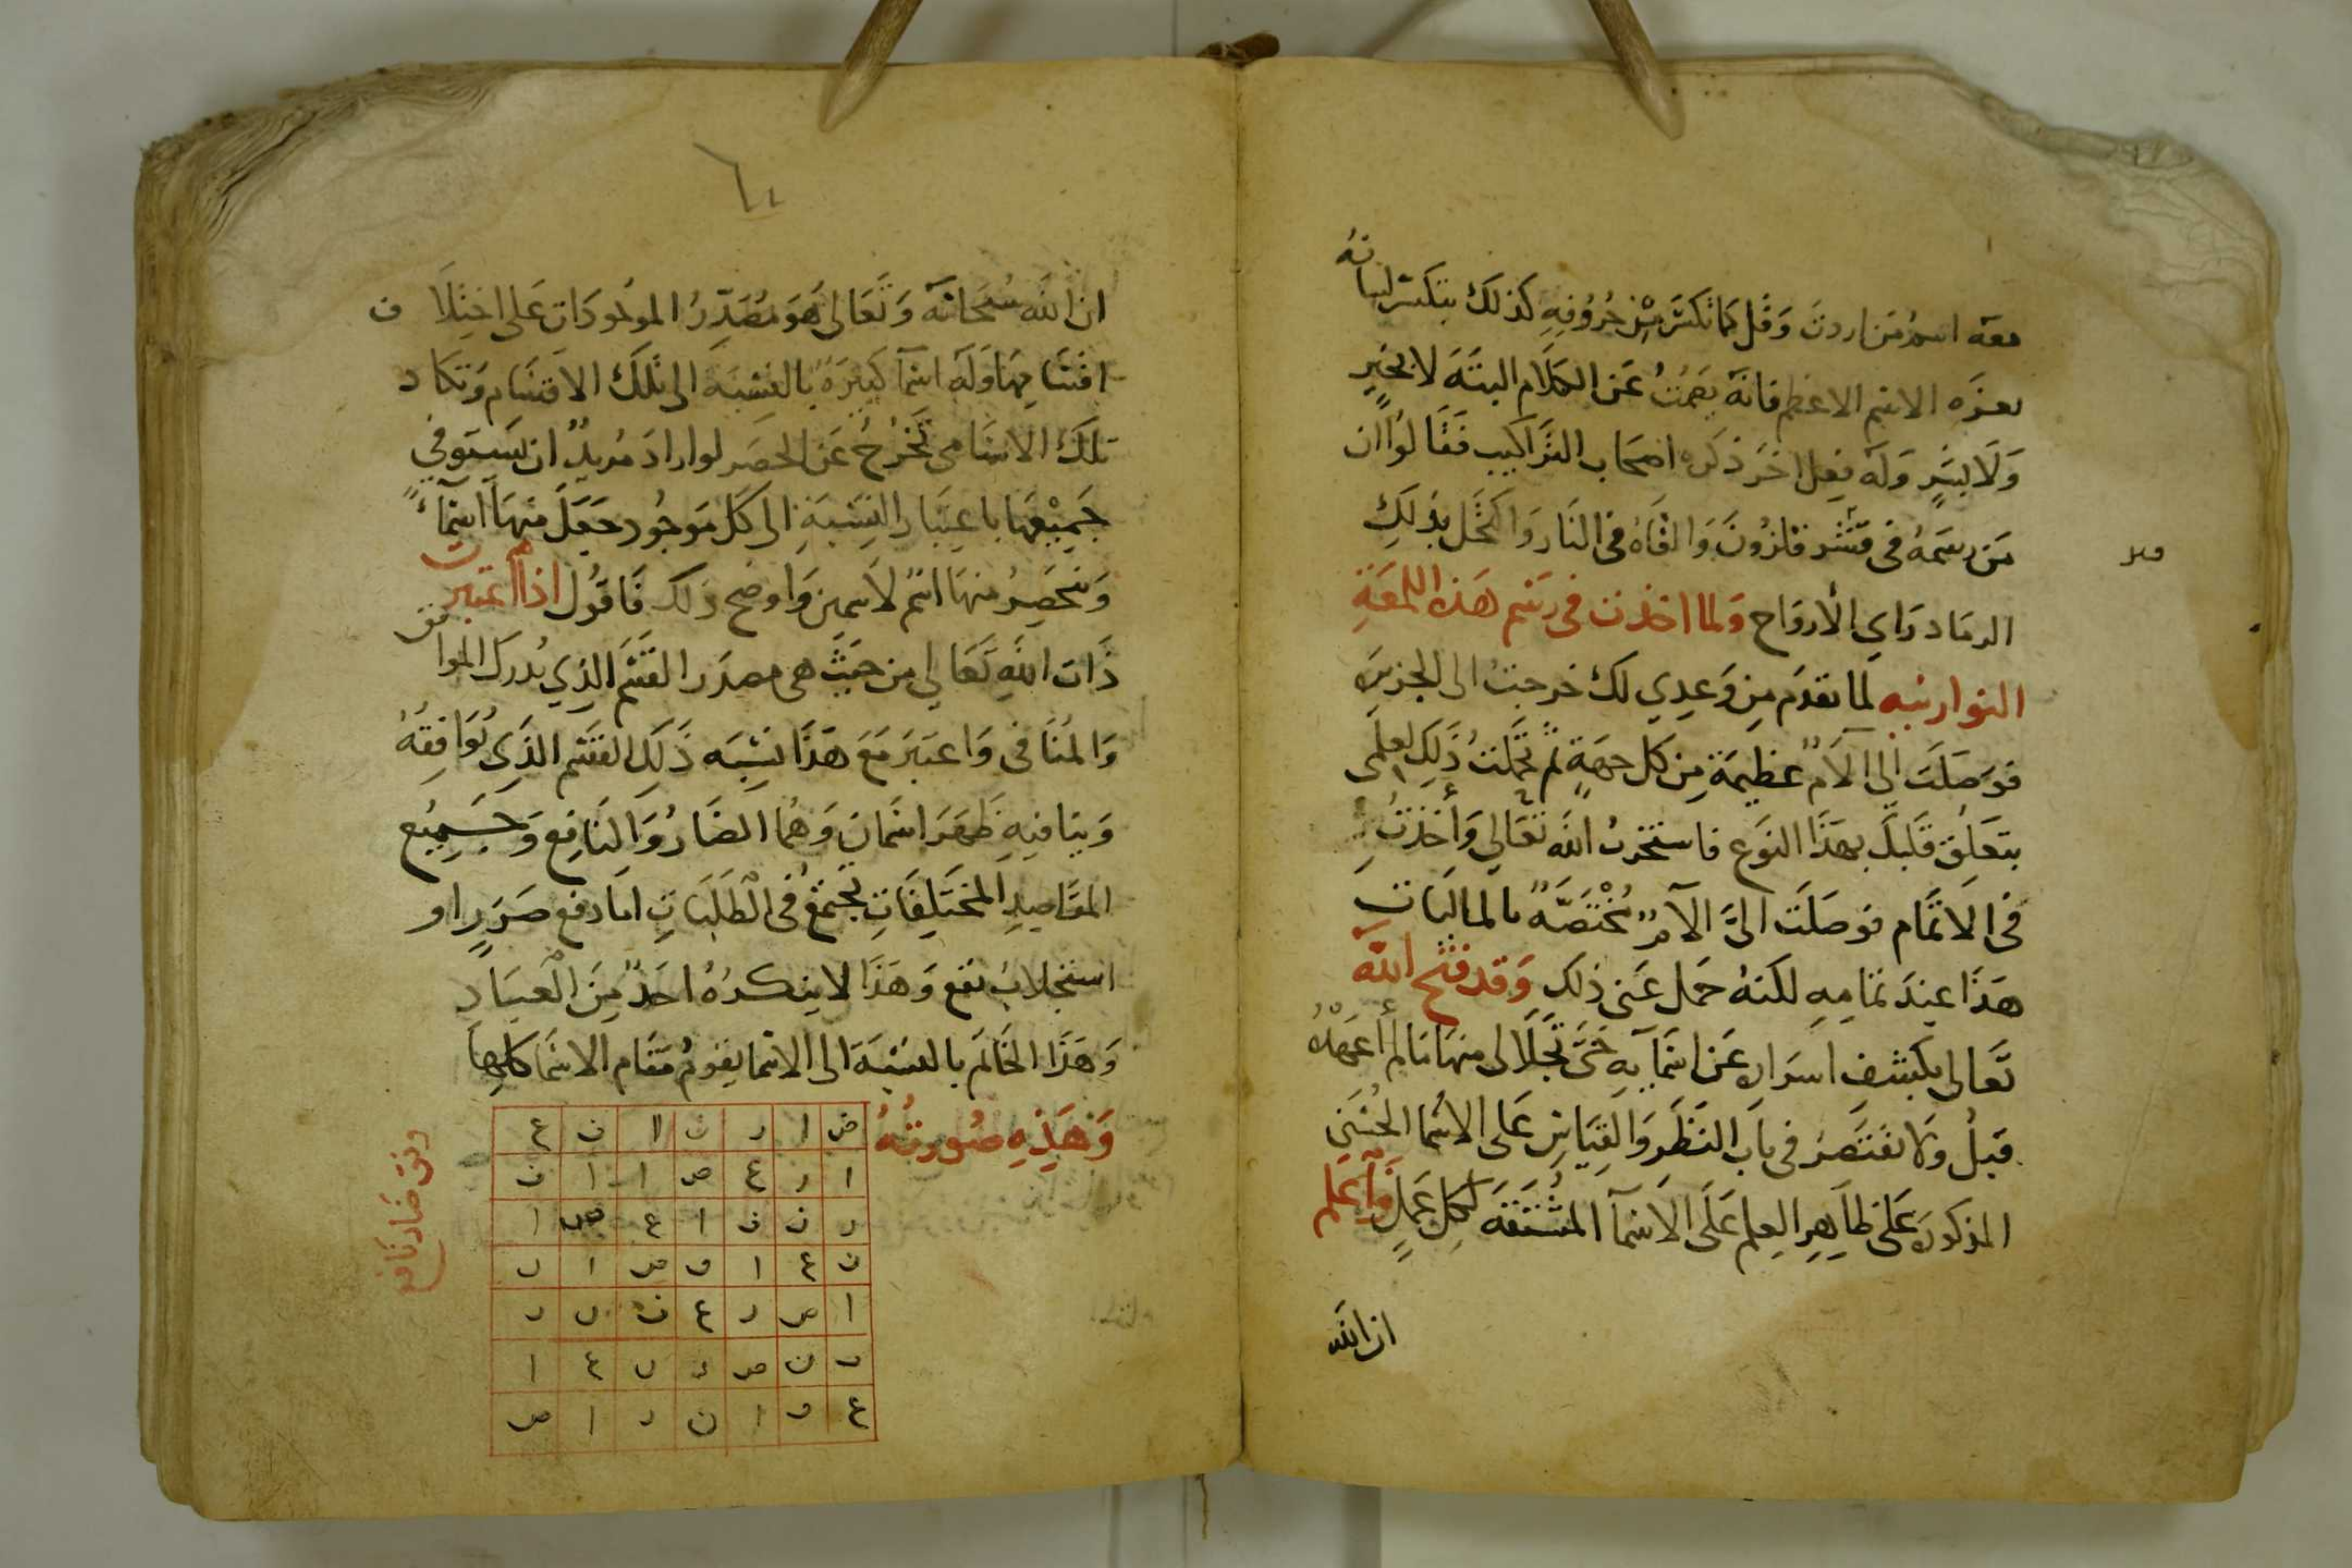 معه اسم من اردت وقل كما تكسّر مِن حُرُوفِهِ كذلك يتكسّر لسانهُ
بعزه الاسم الاعظم فانه يَصمُتُ عَن الكَلَام البتَه لا بخيرٍ
وَلَا بشَرٍ وَلَه فِعل اخر ذكره اصحَاب التراكيب فَقَالوا ان
مَن رسَمهُ في قشر قلزُون وَالقَاهُ في النَار وَاكتحَل بذلِك
الرمَاد رَاي الأروَاح وَلما اخذت في رَسم هَذه اللمعَةِ
النوارنيه لما تقدَم مِن وَعدِي لك خرجتُ الى الجزيره
فوَصَلَت الىَّ الآمٌ عظيمَة مِن كل جهَةٍ ثمّ تحمّلتُ ذَلِك لعلمى
بتعَلق قَلبكَ بهَذا النَوع فاستخرتُ الله تَعَالي وَأخذتُ
في الاتمَام فوصَلَت الىَّ الآمٌ مُخْتَصَّهٌ بالمالبَاتِ
هَذا عِندَ تمَامِهِ لكنهُ حمَل عَنى ذلِكَ وَقد فتح الله
تَعالى بكشفِ اسرَار عَن اسمَآيهِ حَتى تجلّا لى منهَا مَا لم أعهَدْهُ
قبلُ وَلا تقتَصَر في بَاب النَظَر وَالقِيَاسِ عَلى الاسْما الحُسْنى
المذكوره عَلى ظَاهِر العِلم عَلَى الاسْمآ المُشْتَقَة لكل عَملٍ وَاعلم
ان الله
ان الله سُبحَانَه وَتَعَالى هوَ مُصَدِّرُ الموْجُودَات عَلى اختِلَاف
اقسَامِهَا وَلَه اسْمآ كثيرَةٌ بالنسْبَة الى تلكَ الاقسَام وَتكاد
تلكَ الاسَامي تَخْرُج عَن الحصَر لو ارادَ مُرِيدٌ ان يَستوفي
جَمِيْعهَا باعتبَار النِسْبَةِ الى كل مَوجُود جَعَلَ منهَا اسْمآءً
وَينحَصِرُ منهَا اسْمٌ لاسمين وَاوضح ذلك فَاقُول اذا أعتبرت
ذَات اللهِ تَعَالي من حَيثُ هي مصدَر القسَم الذِي يُدرِك الموافق
وَالمُنَافي وَاعتبَرَ مَعَ هَذا نِسْبَه ذَلِك القسَم الذِى يُوَافِقُهُ
وَينافيهِ ظَهَرَ اسْمَان وَهُما الضَارُ وَالنَافِع وَجَمِيْع
المقَاصِدِ المختَلِفَاتِ تجتمَعُ في الطَلَبَاتِ اما دفع ضَرَرٍ او
استجلابُ نفع وَهَذا لا ينكرُهُ احَدٌ مِنَ الْعِبَاد
وَهَذا الخَاتَم بالنسْبَة الى الاسْما يقومُ مَقَام الاسْما كلها
وَهَذِهِ صُورتُهُ
ض ا ر ن ا ف ع
ا ر ع ص ا ا ف
ر ن ف ا ع ض ا
ن ع ا ف ص ا ر
ا ص ر ع ف ن ر
ف ن ص ر ن ع ا
ع ف ا ن ر ا ص
وفق ضَار نَافع